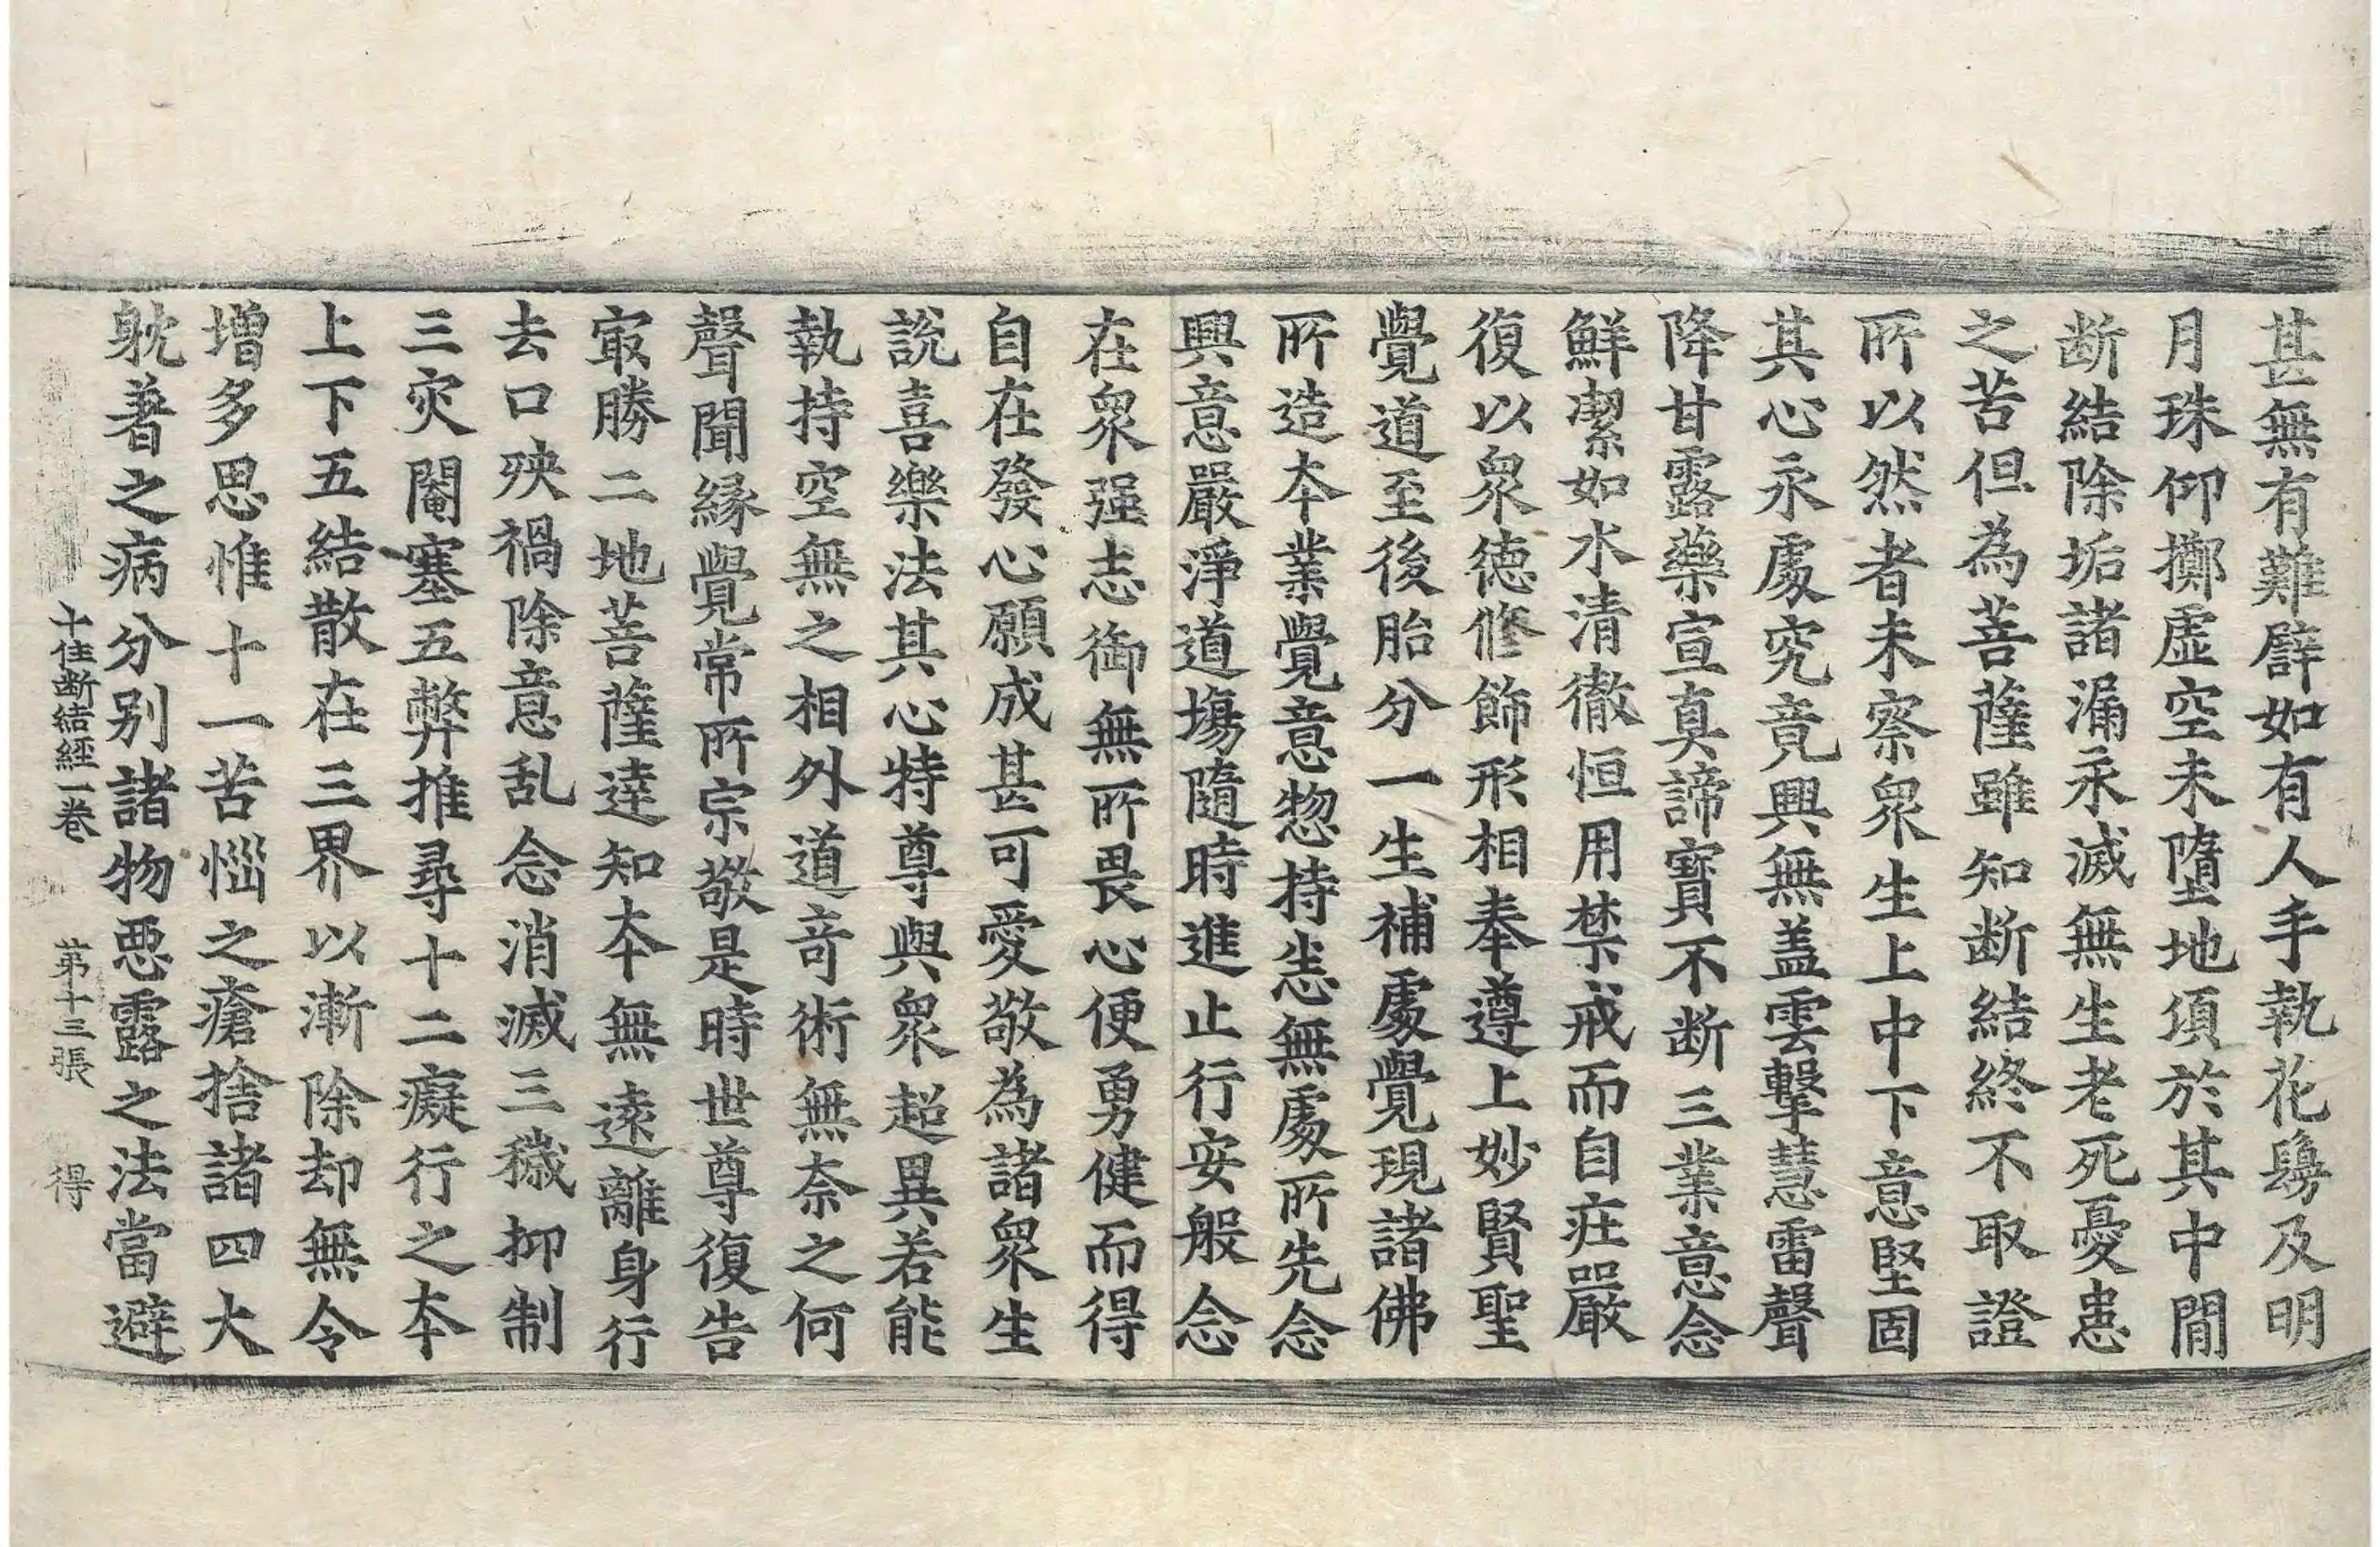 甚無有難譬如有人手執花鬘及明
月珠仰擲虛空未墮地須於其中間
断結除垢諸漏永滅無生老死憂患
之苦但為菩薩雖知断結終不取證
所以然者未察衆生上中下意堅固
其心永處究竟興無盖雲擊慧雷聲
降甘露藥宣真諦寶不断三業意念
鮮潔如水清徹恒用禁戒而自莊嚴
復以衆德修飾形相奉遵上妙賢聖
覺道至後胎分一生補處覺現諸佛
所造本業覺意惣持恙無處所先念
興意嚴淨道場隨時進止行安般念
在衆强志御無所畏心便勇健而得
自在發心願成甚可愛敬為諸衆生
說喜樂法其心特尊與衆超異若能
執持空無之相外道奇術無奈之何
聲聞緣覺常所宗敬是時世尊復告
㝡勝二地菩薩達知本無遠離身行
去口殃禍除意乱念消滅三穢抑制
三灾闇塞五弊推尋十二癡行之本
上下五結散在三界以漸除却無令
增多思惟十一苦惱之瘡捨諸四大
躭著之病分別諸物悪露之法當避
十住断結經一卷 苐十三張 得